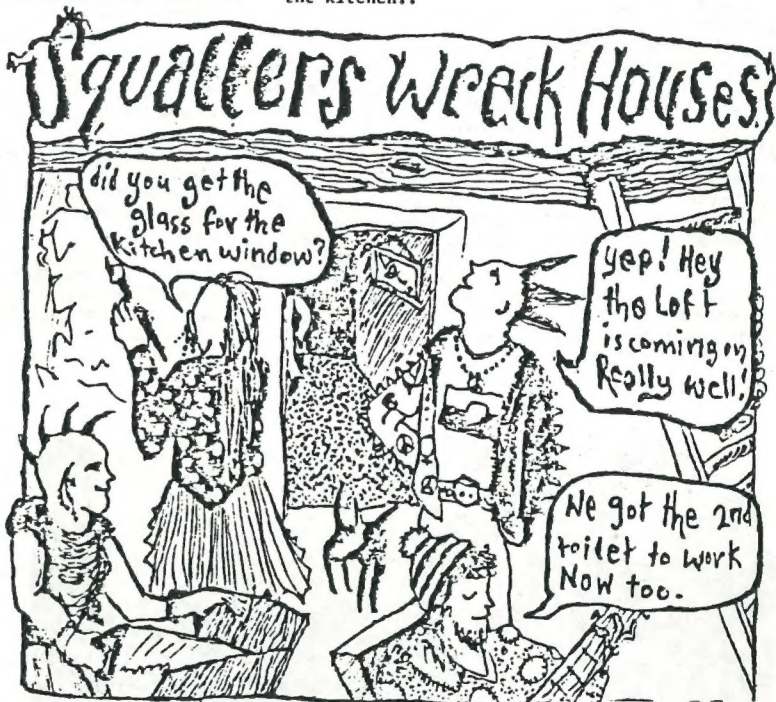 the kitchen!.
Squatters Wreck Houses.
did you get the
glass for the
kitchen window?
yep! Hey
the Loft
is coming on
Really well!
We got the 2nd
toilet to work
Now too.